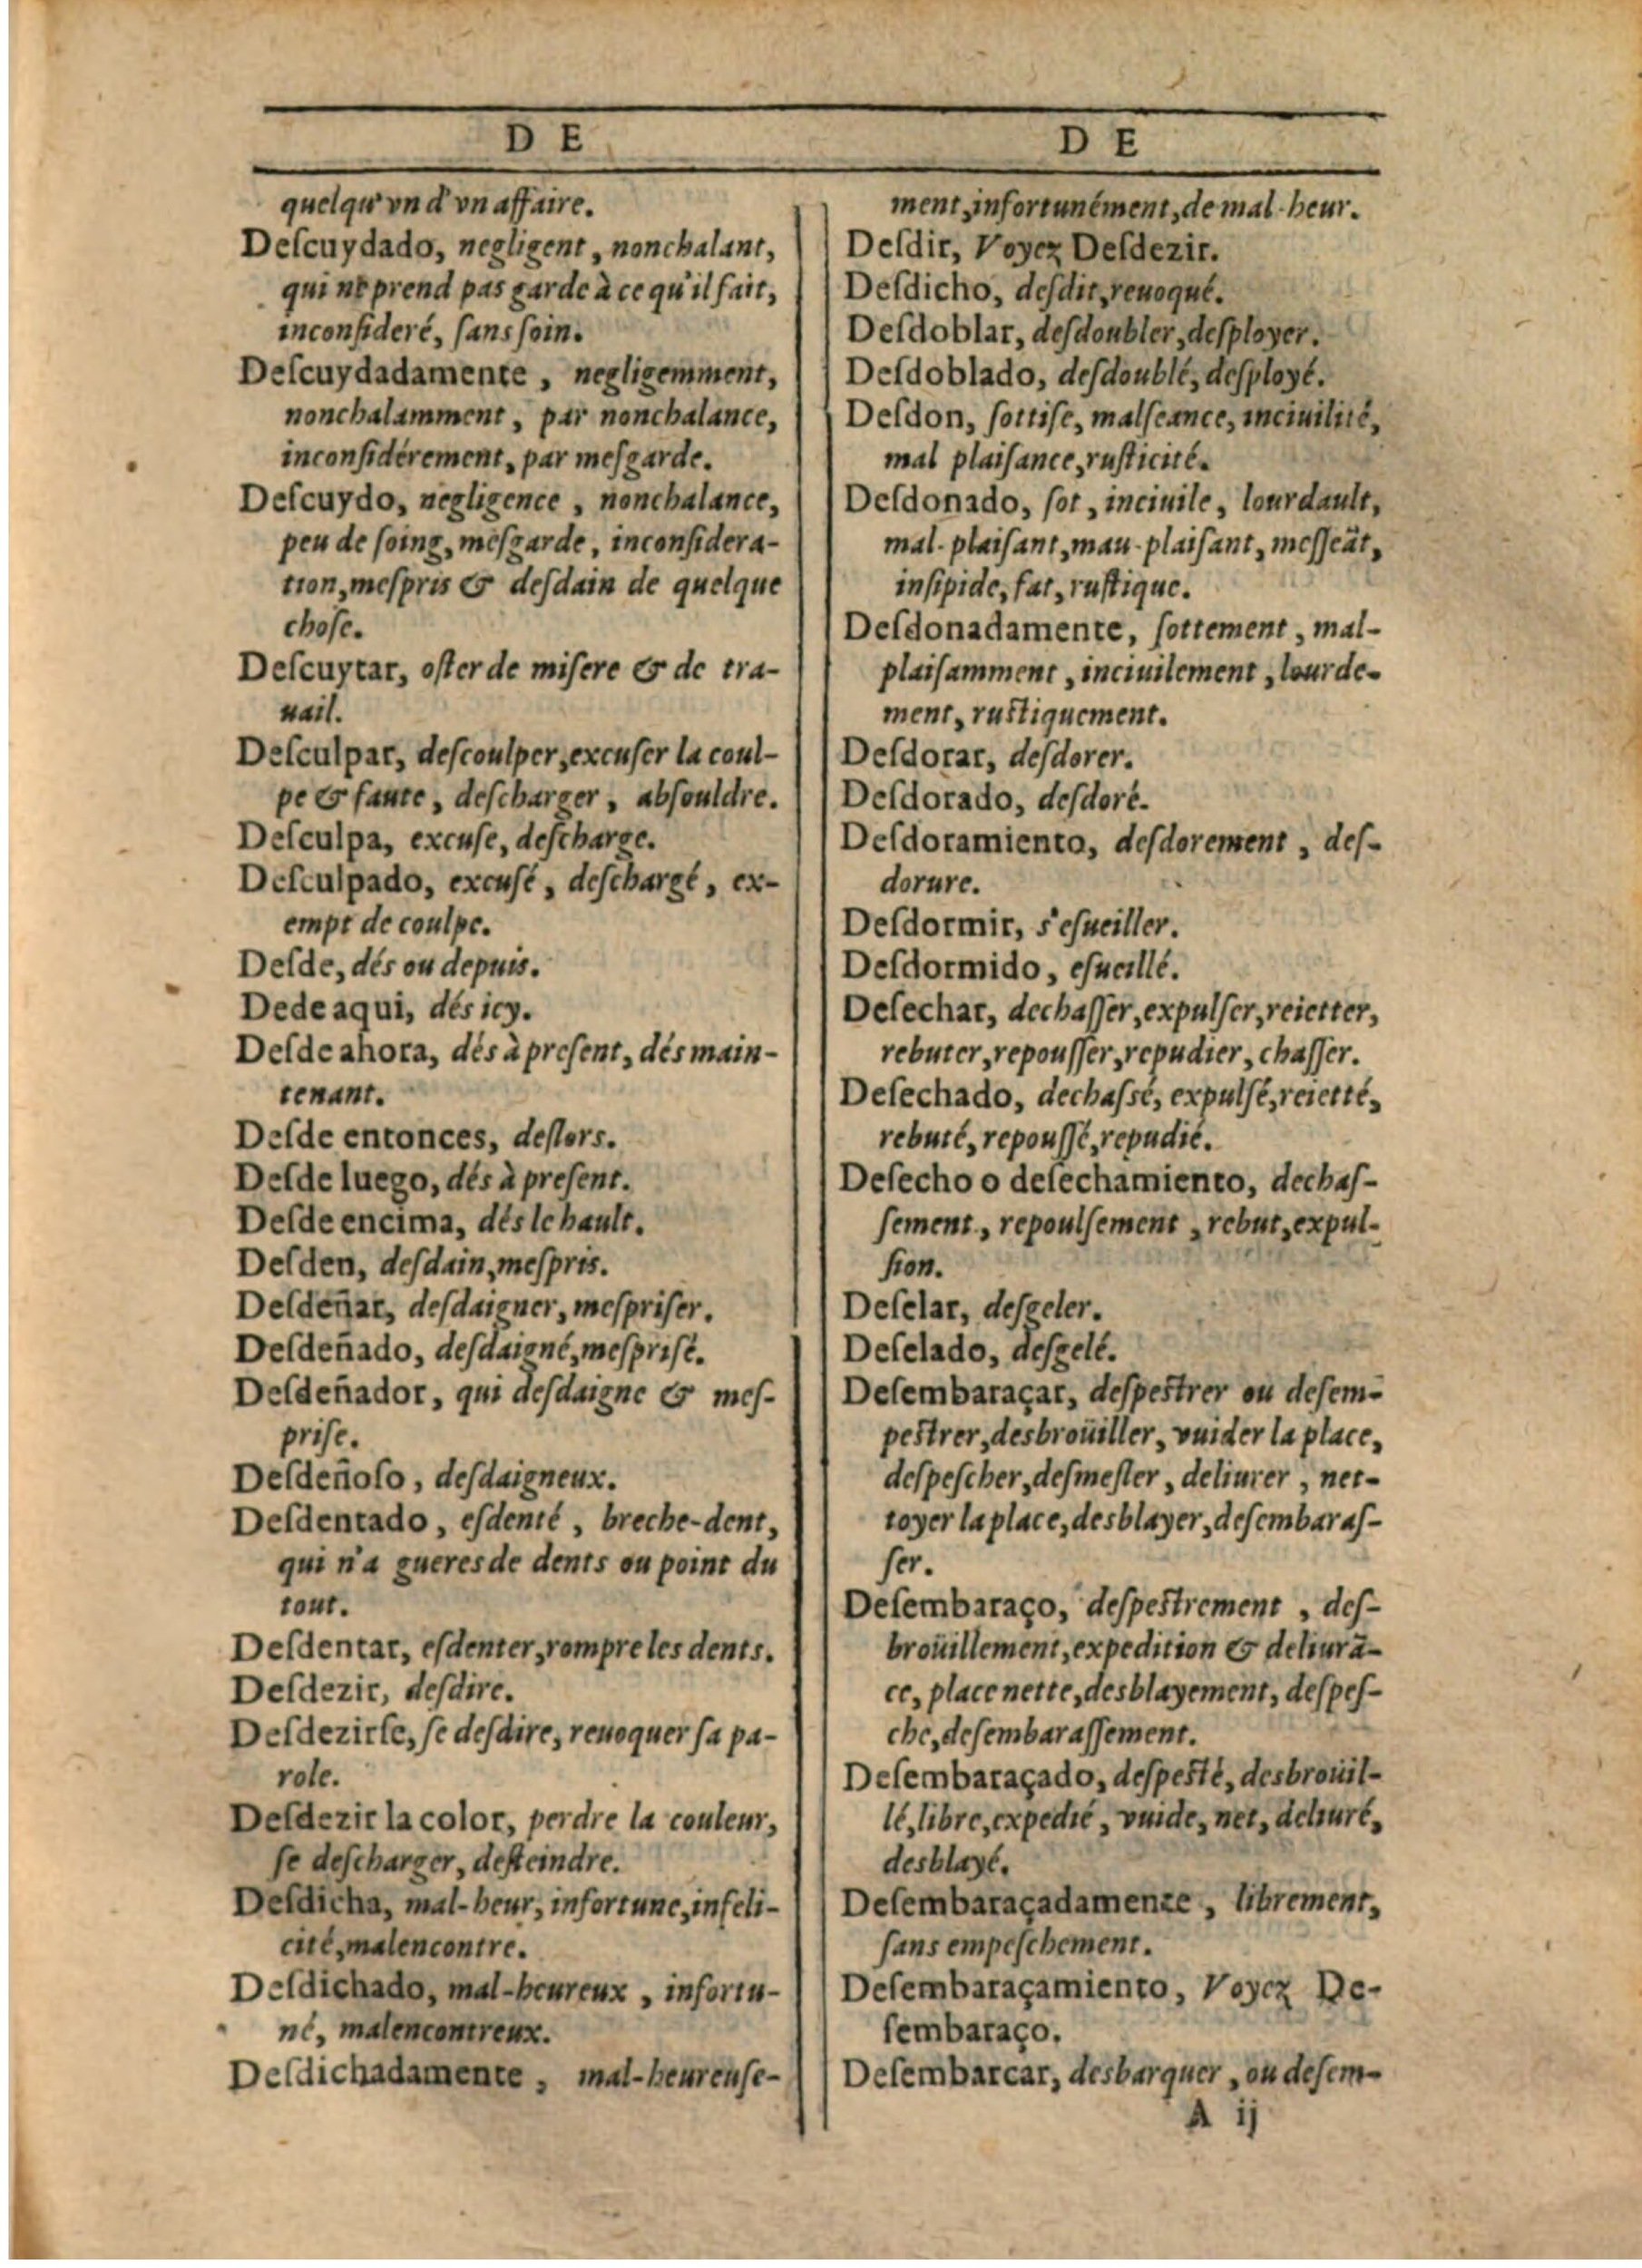 D E
quelqu'vn d'vn affaire.
Deſcuydado, negligent, nonchalant,
qui ne prend pas garde à ce qu'il fait,
inconſideré, ſans ſoin.
Deſcuydadamente, negligemment,
nonchalamment, par nonchalance,
inconſidérement, par meſgarde.
Deſcuydo, negligence, nonchalance,
peu de ſoing, meſgarde, inconſidera-
tion, meſpris & deſdain de quelque
choſe.
Deſcuytar, oſter de miſere & de tra-
uail.
Deſculpar, deſcoulper, excuſer la coul-
pe & faute, deſcharger, abſouldre.
Deſculpa, excuſe, deſcharge.
Deſculpado, excuſé, deſchargé, ex-
empt de coulpe.
Deſde, dés ou depuis.
Dede aqui, dés icy.
Deſde ahora, dés à preſent, dés main-
tenant.
Deſde entonces, deſlors.
Deſde luego, dés à preſent.
Deſde encima, dés le hault.
Deſden, deſdain, meſpris.
Deſdeñar, deſdaigner, meſpriſer.
Deſdeñado, deſdaigné, meſpriſé.
Deſdeñador, qui deſdaigne & meſ-
priſe.
Deſdeñoſo, deſdaigneux.
Deſdentado, eſdenté, breche-dent,
qui n'a gueres de dents ou point du
tout.
Deſdentar, eſdenter, rompre les dents.
Deſdezir, deſdire.
Deſdezirſe, ſe deſdire, reuoquer ſa pa-
role.
Deſdezir la color, perdre la couleur,
ſe deſcharger, deſteindre.
Deſdicha, mal-heur, infortune, infeli-
cité, malencontre.
Deſdichado, mal-heureux, infortu-
né, malencontreux.
Deſdichadamente, mal-heureuſe-
D E
ment, infortunément, de mal-heur.
Deſdir, Voyez Deſdezir.
Deſdicho, deſdit, reuoqué.
Deſdoblar, deſdoubler, deſployer.
Deſdoblado, deſdoublé, deſployé.
Deſdon, ſottiſe, malſeance, inciuilité,
mal plaiſance, ruſticité.
Deſdonado, ſot, inciuile, lourdault,
mal-plaiſant, mau-plaiſant, meſſeãt,
inſipide, fat, ruſtique.
Deſdonadamente, ſottement, mal-
plaiſamment, inciuilement, lourde-
ment, ruſtiquement.
Deſdorar, deſdorer.
Deſdorado, deſdoré.
Deſdoramiento, deſdorement, deſ-
dorure.
Deſdormir, s'eſueiller.
Deſdormido, eſueillé.
Deſechar, dechaſſer, expulſer, reietter,
rebuter, repouſſer, repudier, chaſſer.
Deſechado, dechaſsé, expulſé, reietté,
rebuté, repouſſé, repudié.
Deſecho o deſechamiento, dechaſ-
ſement, repoulſement, rebut, expul-
ſion.
Deſelar, deſgeler.
Deſelado, deſgelé.
Deſembaraçar, deſpeſtrer ou deſem-
peſtrer, desbroüiller, vuider la place,
deſpeſcher, deſmeſler, deliurer, net-
toyer la place, desblayer, deſembaraſ-
ſer.
Deſembaraço, deſpeſtrement, deſ-
broüillement, expedition & deliurã-
ce, place nette, desblayement, deſpeſ-
che, deſembaraſſement.
Deſembaraçado, deſpeſté, desbroüil-
lé, libre, expedié, vuide, net, deliuré,
desblayé.
Deſembaraçadamente, librement,
ſans empeſchement.
Deſembaraçamiento, Voyez De-
ſembaraço.
Deſembarcar, desbarquer, ou deſem-
A ij